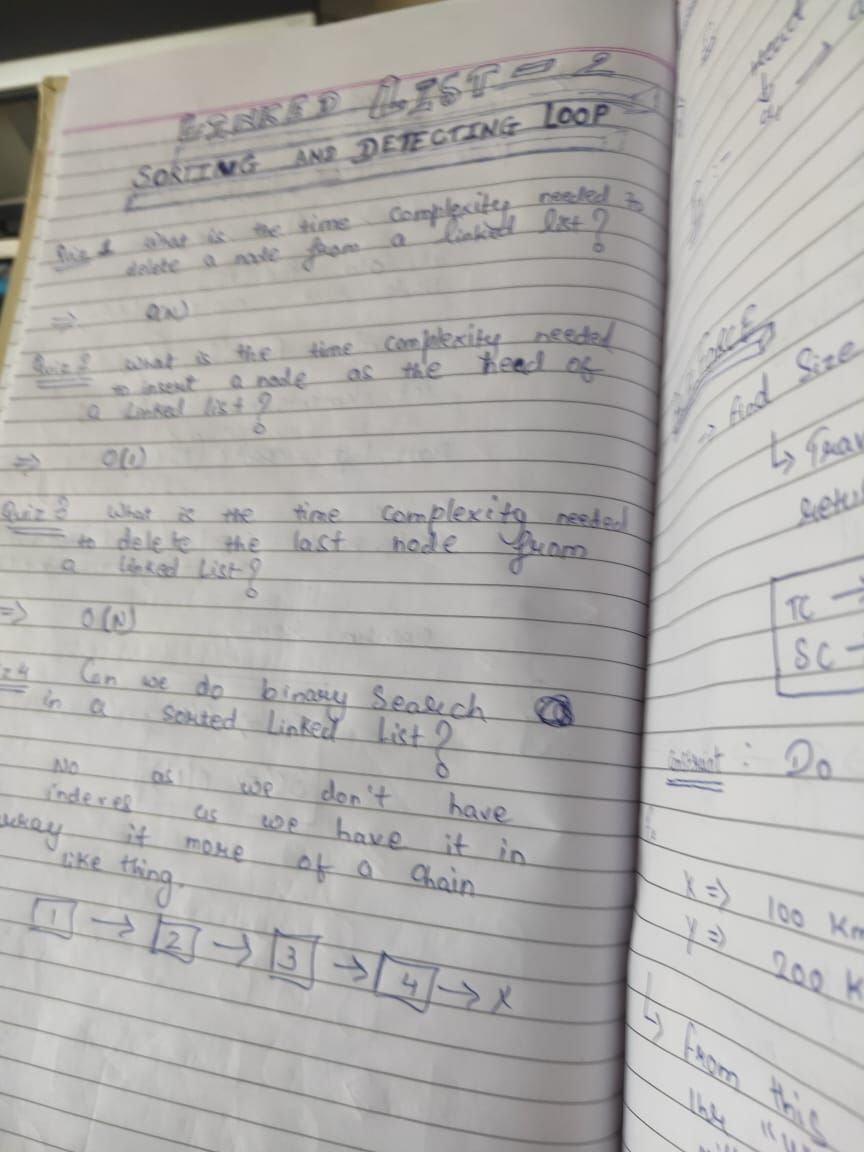 LINKED LIST - 2
SORTING AND DETECTING LOOP
Quiz 1 What is the time complexity needed to
delete a node from a linked list?
=> O(N)
Quiz 2 What is the time complexity needed
to insert a node as the head of
a linked list?
=> O(1)
Quiz 3 What is the time complexity needed
to delete the last node from
a linked List?
=> O(N)
Can we do binary Search
in a sorted Linked List?
No as we don't have
indexes as we have it in
array it more of a chain
like thing.
1 → 2 → 3 → 4 → X
=> find Size
↳
TC →
SC -
Constraint : Do
X => 100 Km
Y => 200 K
↳ From this